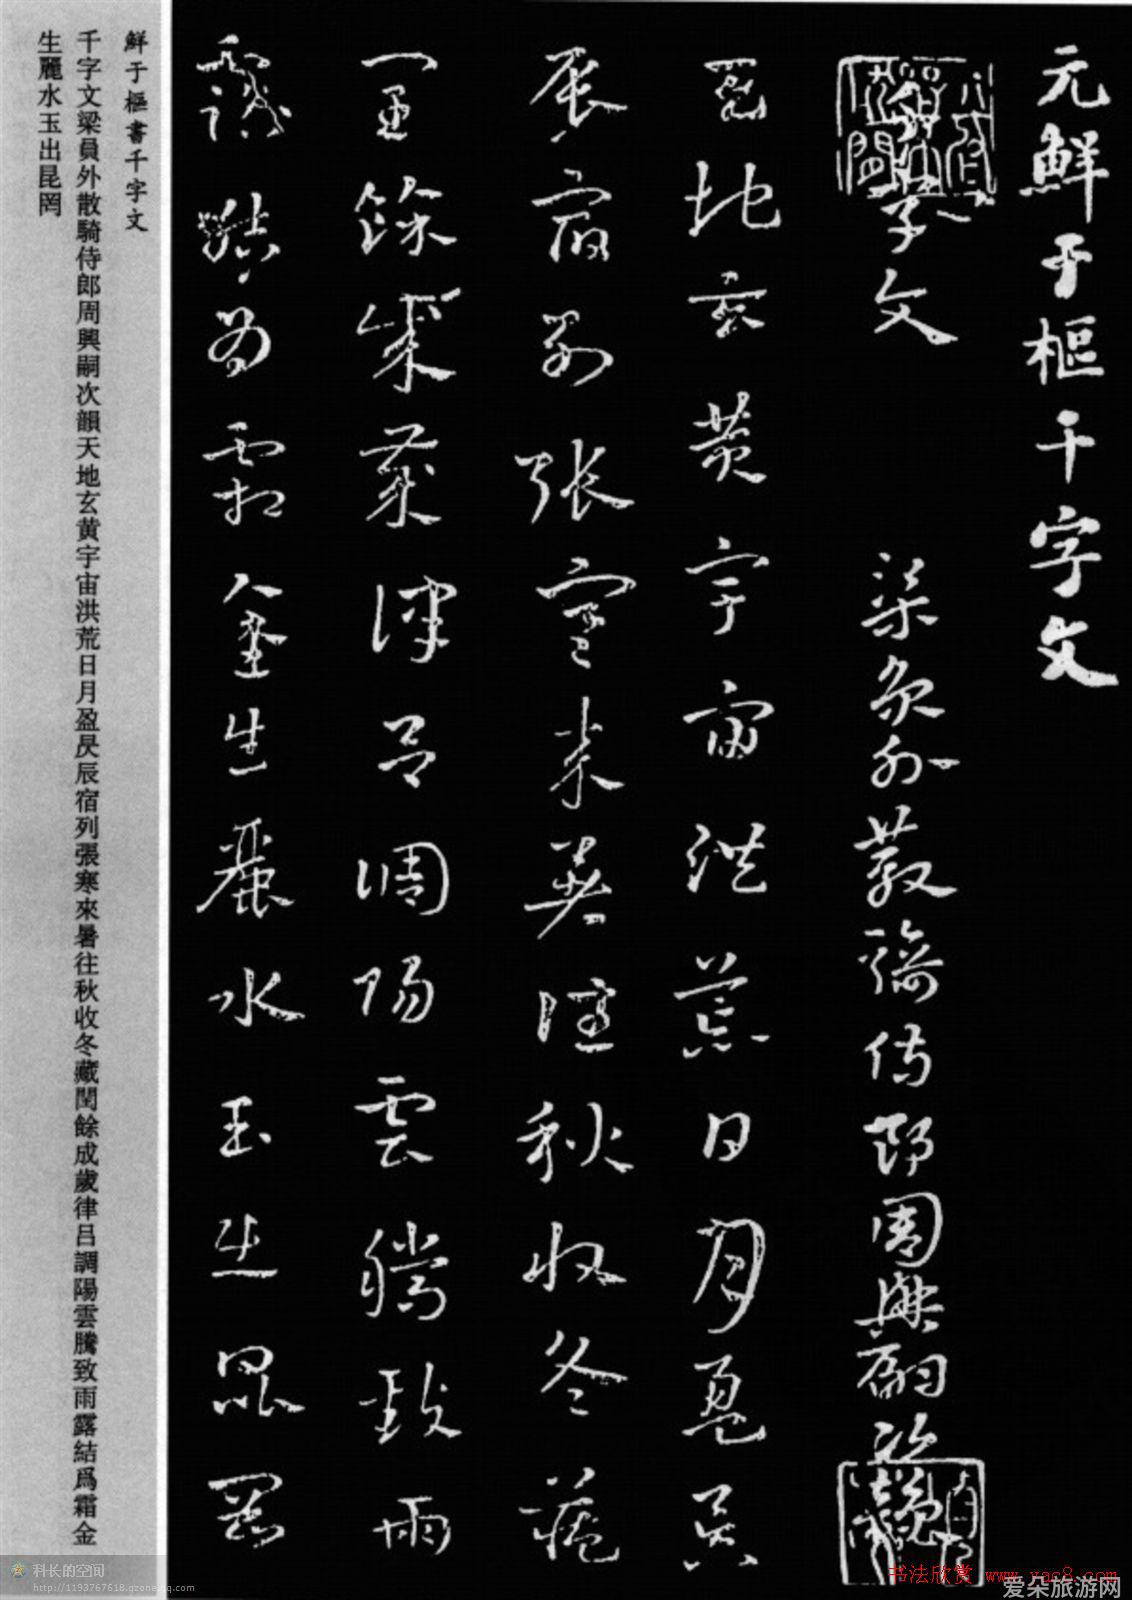 元鮮于樞千字文
千字文 梁員外散騎侍郎周興嗣次韻
天地玄黃宇宙洪荒日月盈昃
辰宿列張寒來暑往秋收冬藏
閏餘成歲律呂調陽雲騰致雨
露結為霜金生麗水玉出昆罡
鮮于樞書千字文
千字文梁員外散騎侍郎周興嗣次韻天地玄黄宇宙洪荒日月盈昃辰宿列張寒來暑往秋收冬藏閏餘成歲律吕調陽雲騰致雨露結爲霜金
生麗水玉出昆罔
科长的空间
http://1193767618.qzone.qq.com
书法欣赏 www.yac8.com
爱朵旅游网